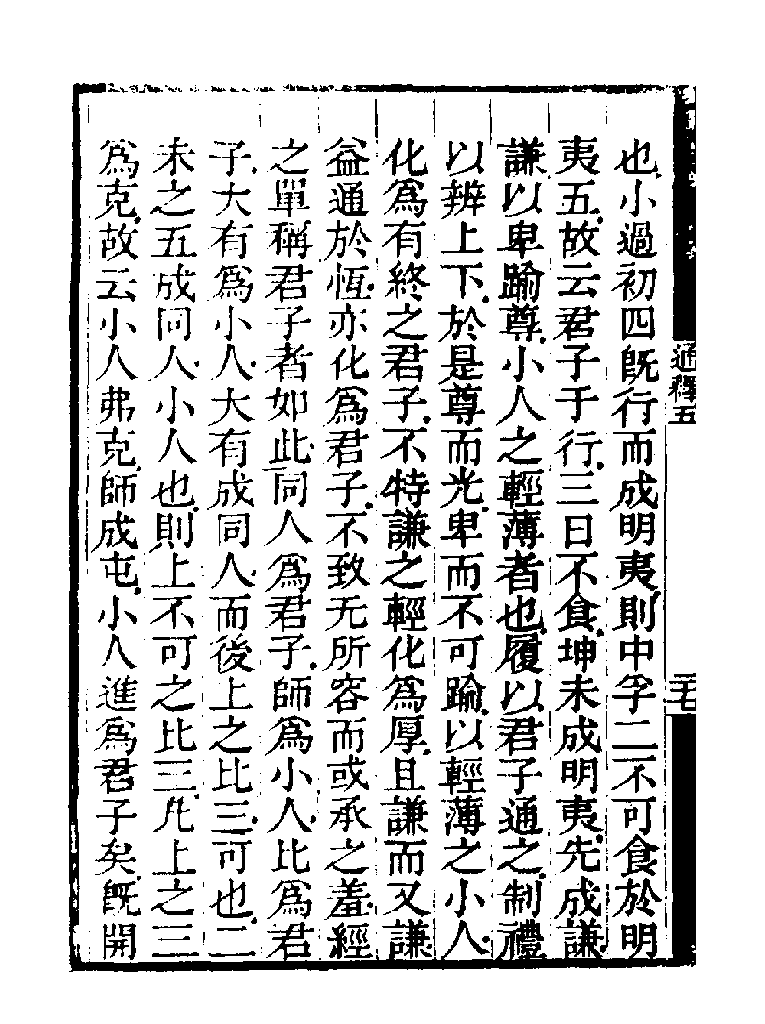 也小過初四旣行而成明夷則中孚二不可食於明
夷五故云君子于行三日不食坤未成明夷先成謙
謙以卑踰尊小人之輕薄者也履以君子通之制禮
以辨上下於是尊而光卑而不可踰以輕薄之小人
化爲有終之君子不特謙之輕化爲厚且謙而又謙
益通於恆亦化爲君子不致无所容而或承之羞經
之單稱君子者如此同人爲君子師爲小人比爲君
子大有爲小人大有成同人而後上之比三可也二
未之五成同人小人也則上不可之比三凡上之三
爲克故云小人弗克師成屯小人進爲君子矣旣開
通釋五